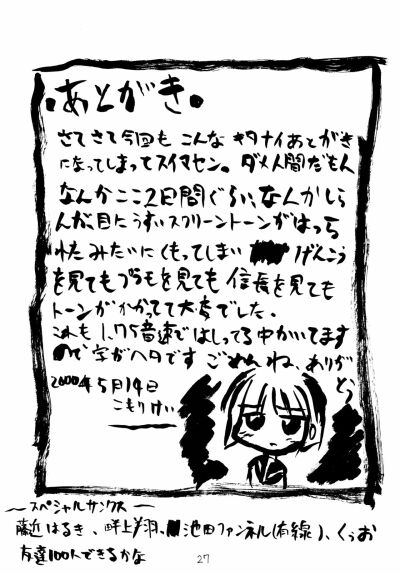 あとがき。
さてさて今回も こんな キタナイあとがき
になってしまってスイマセン。ダメ人間だもん
なんかここ2日間ぐらい、なんかしら
んが、目にうすいスクリーントーンがはっら
れたみたいにくもってしまい げんこう
を見てもプラモを見ても 信長を見ても
トーンがかかってて大変でした。
これも 1.75音速ではしってる中かいてます
ので字がヘタです ごめんね、ありが
とう
2000年5月14日
こもりけい
〜スペシャルサンクス〜
藤近はるき、畔上羽、池田ファンネル(有線)、くぅお
友達100人できるかな
27